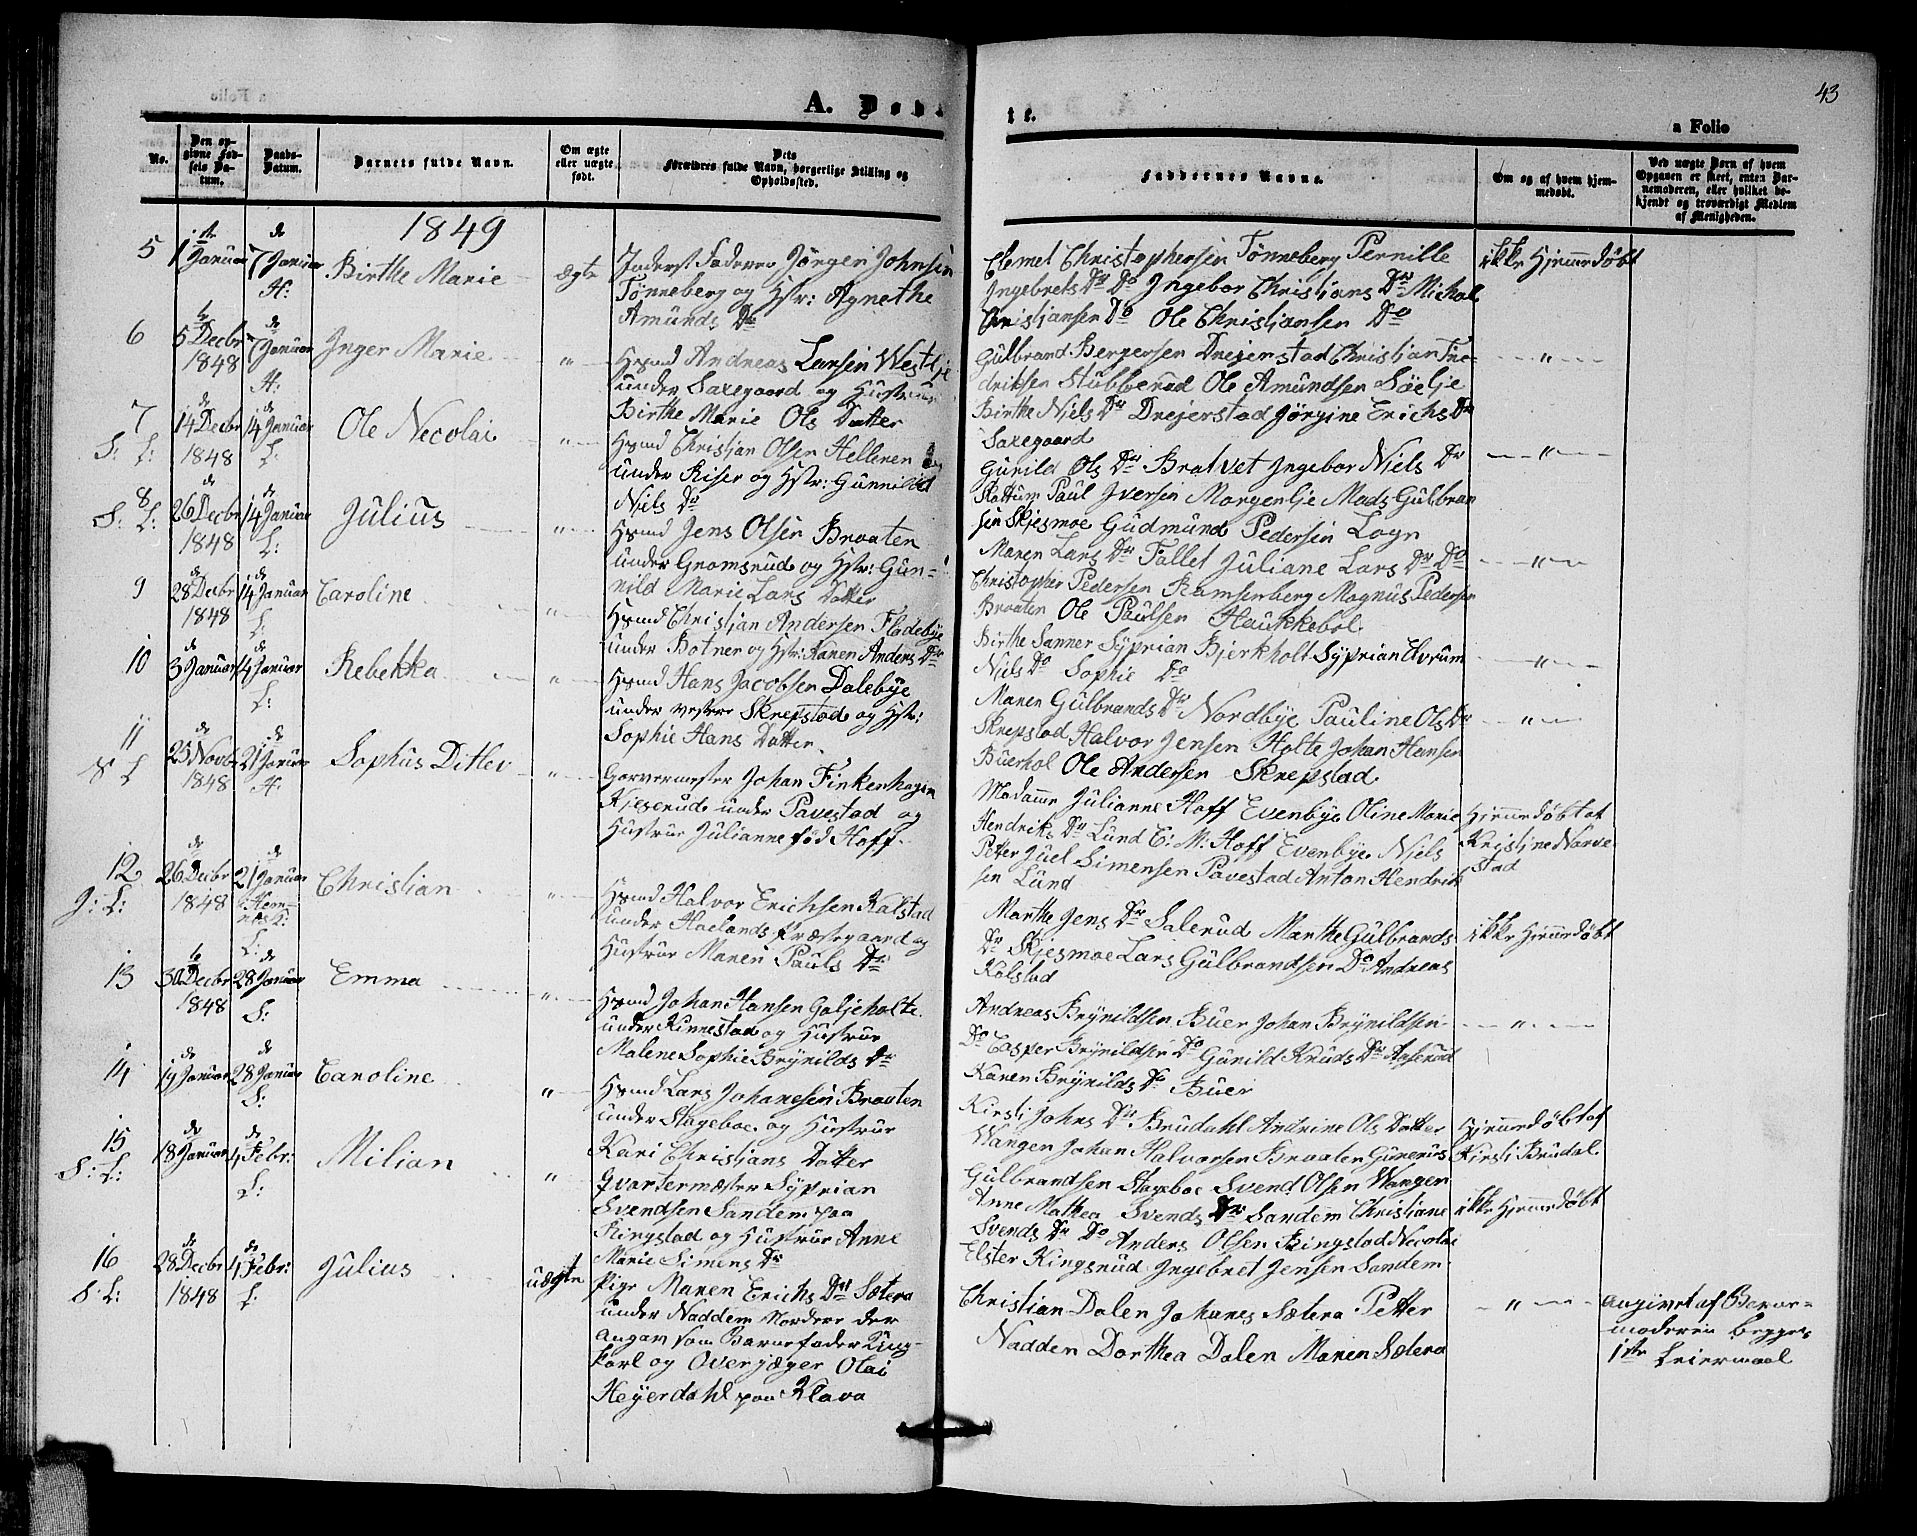 43
A. Døbte.
a Folio
No.
Den opgivne Fødsels Datum.
Daabs-Datum.
Barnets fulde Navn.
Om ægte eller uægte født.
Dets Forældres fulde Navn, borgerlige Stilling og Opholdssted.
Faddernes Navne.
Om og af hvem hjemmedøbt.
Ved uægte Børn af hvem Opgaven er skeet, enten Barnemoderen, eller hvilket bekjendt og troværdigt Medlem af Menigheden.
1849
5
1ste Januar
de 7 Januar
H:
Birthe Marie
ægte
Inderst Faderen Jørgen Johnsen
Tønneberg og Hstr: Agnethe
Amunds Dr
Clemet Christophersen Tønneberg Pernille
Ingebrets Dr Do Ingebor Christjans Dr Michal
Christjansen Do Ole Christjansen Do
ikke Hjemmedøbt
6
5 Decbr
1848
de 7 Januar
H:
Inger Marie
"
Hsmd Andreas Larsen Westlje
under Saxegaard og Hustrue
Birthe Marie Ols Datter
Gulbrand Bergersen Drejerstad Christjan Fre-
driksen Stubberud Ole Amundsen Søelje
Birthe Niels Dr Drejerstad Jørgine Erichs Dr
Saxegaard
"
7
S: L:
de 14 Decbr
1848
de 14 Januar
L:
Ole Necolai
"
Hsmd Christjan Olsen Helleren
under Riser og Hstr: Gunnild
Niels Dr
Gunild Ols Dr Bratvet Ingebor Niels Dr
Slottum Paul Iversen Morgenlje Mads Gulbran
sen Skjesmoe Gudmund Pedersen Logn
"
8
S: L:
de 26 Decbr
1848
de 14 Januar
L:
Julius
"
Hsmd Jens Olsen Braaten
under Gromsrud og Hstr: Gun-
nild Marie Lars Datter
Maren Lars Dr Fallet Juliane Lars Dr Do
Christopher Pedersen Ramsenberg Magnus Pedersen
Braaten Ole Paulsen Haukkebol
"
9
de 28 Decbr
1848
de 14 Januar
L:
Caroline
"
Hsmd Christjan Andersen Flodebye
under Botner og Hstr: Karen Anders Dr
Birthe Sanner Syprian Bjerkholt Syprian Elvrum
Niels Do Sophie Do
"
10
de 3 Januar
de 14 Januar
L:
Rebekka
"
Hsmd Hans Jacobsen Dalebye
under vestere Skrepstad og Hstr:
Sophie Hans Datter.
Maren Gulbrands Dr Nordbye Pauline Ols Dr
Skrepstad Halvor Jensen Holte Johan Hansen
Buerhol Ole Andersen Skrepstad
"
11
S L
de 25 Novbr
1848
de 21 Januar
H:
Sophus Ditlev
"
Garvermester Johan Finkenhagen
Kjeserud under Pavestad og
Hustrue Julianne fød Hoff.
Madame Julianne Hoff Evenbye Oline Marie
Hendriks Dr Lund C: M: Hoff Evenbye Niels
Petter Juel Simensen Pavestad Anton Hendrik
sen Lund
Hjemmedøbt af
Kristjne Narve
stad
12
J: L:
de 26 Decbr
1848
de 21 Januar
Hem-
næs K:
L:
Christian
"
Hsmd Halvor Erichsen Kolstad
under Hølands Præstegaard og
Hustrue Maren Pauls Dr
Marthe Jens Dr Salerud Marthe Gulbrands
Dr Skjesmoe Lars Gulbrandsen Do Andreas
Kolstad
ikke Hjemmedøbt
13
30 Decbr
1848
de 28 Januar
S:
Emma
"
Hsmd Johan Hansen Goljeholte
under Kinnestad og Hustrue
Malene Sophie Brynilds Dr
Andreas Brynildsen Buer Johan Brynildsen
Do Casper Brynildsen Do Gunild Knuds Dr Aaserud
Karen Brynilds Dr Buer
"
14
de 19 Januar
de 28 Januar
S:
Caroline
"
Hsmd Lars Johanesen Braaten
under Stageboe og Hustrue
Kari Christjans Datter
Kirsti Johns Dr Brudahl Andrine Ols Datter
Wangen Johan Halvorsen Braaten Gunerius
Gulbrandsen Stageboe Svend Olsen Wangen
Hjemmedøbt af
Kirsti Brudal
15
S: L:
de 18 Januar
de 4 Febr:
L:
Milian
"
Qvartermester Syprian
Svendsen Sandem paa
Ringstad og Hustrue Anne
Marie Simens Dr
Anne Mathea Svends Dr Sandem Christiane
Svends Dr Do Anders Olsen Ringstad Necolai
Elster Kingsrud Ingebret Jensen Sandem
ikke Hjemmedøbt
16
S. L:
28 Decbr
1848
de 4 Febr:
L:
Julius
uægte
Pige Maren Erichs Dr Sætera
under Naddem Nordere der
angav som Barnefader Ung-
karl og Overjæger Olai
Heyerdahl paa Klava
Christian Dalen Johanes Sætera Petter
Nadden Dorthea Dalen Maren Sætera
"
angivet af Barne-
moderen begges
1ste Leiermaal